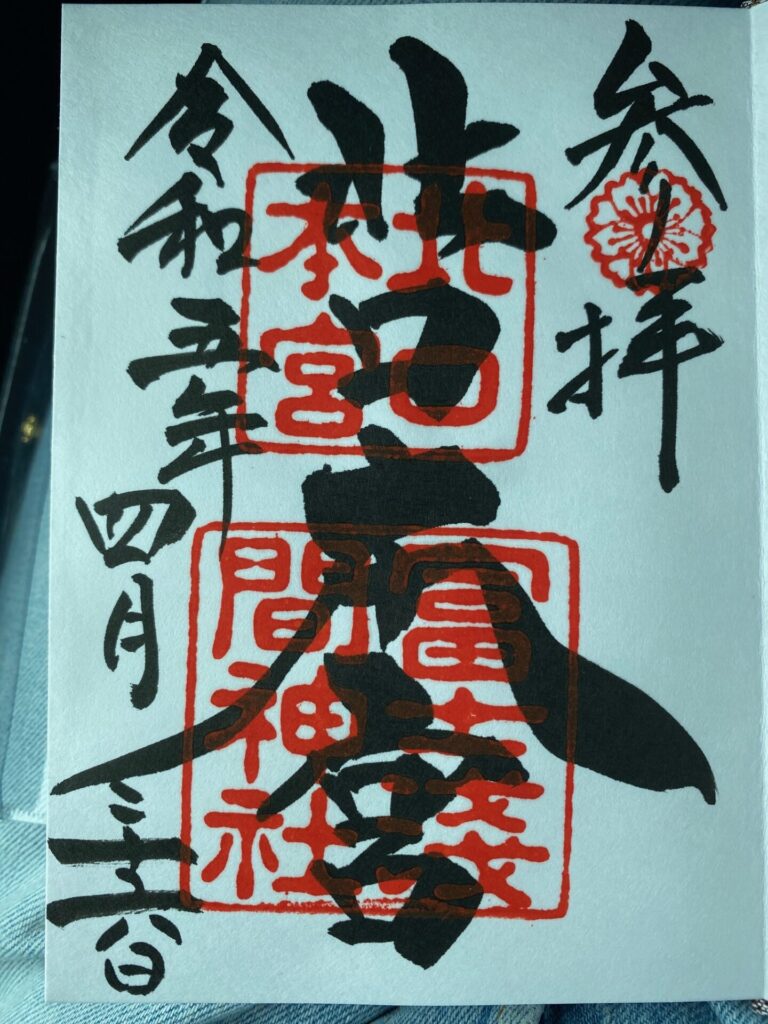 参拝
北口本宮
北口
本宮
冨士淺
間神社
令和五年四月二十八日